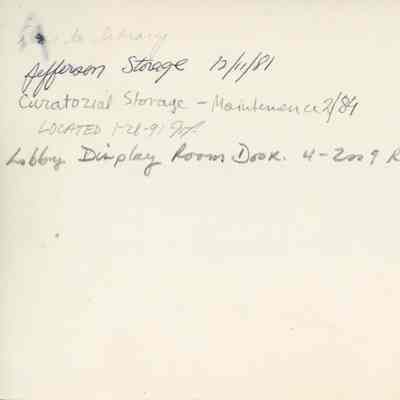 to library
Jefferson Storage 12/11/81
Curatorial Storage - Maintenence 2/84
LOCATED 1-28-91
Lobby Display Room Door. 4-2009 R